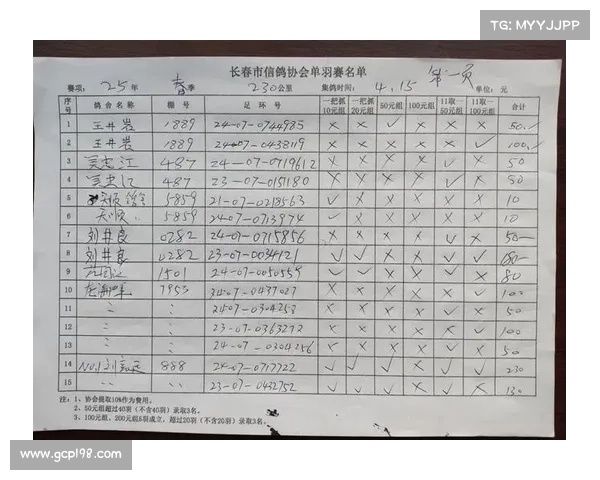 TG: MYYJJPP
长春市信鸽协会单羽赛名单
第一页
赛项: 25 年 春季 230公里 集鸽时间: 4.15 单位: 元
序号 鸽舍名称 棚号 足环号 一把抓10元组 一把抓20元组 50元组 100元组 11取一50元组 11取一100元组 合计
1 王井岩 1889 24-07-0744985 × × ✓ × × × 50
2 王井岩 1889 24-07-0438119 × × × × × ✓ 100
3 吴忠江 487 24-07-0719612 × × × × ✓ × 50
4 吴忠江 487 23-07-0151180 × × × × ✓ × 50
5 5859 21-07-0218563 ✓ × × × × × 10
6 天顺 5859 24-07-0713974 ✓ × × × × × 10
7 刘井良 0282 24-07-0715856 × × × × ✓ × 50
8 刘井良 0282 23-07-0034121 ✓ ✓ × × ✓ × 80
9 1501 24-07-0050559 ✓ ✓ × × ✓ × 80
10 7953 24-07-0437027 × × × × × ✓ 100
11 24-07-0304253 × × × × ✓ × 50
12 23-07-0363272 × × × × × ✓ 100
13 24-07-0304256 × × × × ✓ × 50
14 NO.1 888 24-07-0717722 ✓ ✓ ✓ × ✓ ✓ 230
15 23-07-0432752 ✓ ✓ ✓ × ✓ × 130
注: 1、协会提取10%作为费用。
2、50元组超过40羽(不含40羽)录取3名。
3、100元组、200元组5羽成立, 超过20羽(不含20羽)录取3名。
www.gcpl98.com